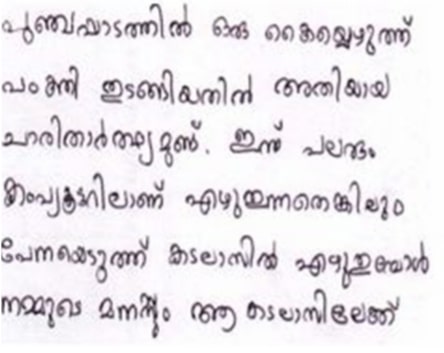 പുഞ്ചപ്പാടത്തിൽ ഒരു കൈയ്യെഴുത്ത്
പംക്തി തുടങ്ങിയതിൽ അതിയായ
ചാരിതാർത്ഥ്യമുണ്ട്. ഇന്ന് പലരും
കംപ്യൂട്ടറിലാണ് എഴുതുന്നതെങ്കിലും
പേനയെടുത്ത് കടലാസിൽ എഴുതുമ്പോൾ
നമ്മുടെ മനസ്സും ആ കടലാസിലേക്ക്